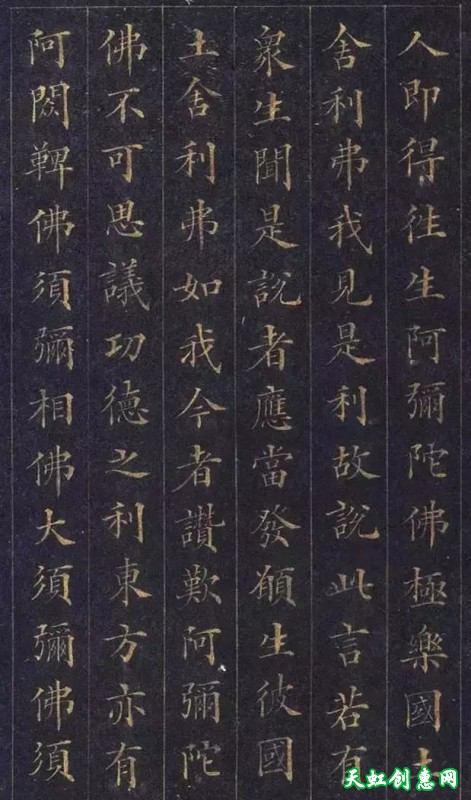 人即得往生阿彌陀佛極樂國土
舍利弗我見是利故說此言若有
衆生聞是說者應當發願生彼國
土舍利弗如我今者讚歎阿彌陀
佛不可思議功德之利東方亦有
阿閦鞞佛須彌相佛大須彌佛須
天虹创惠网